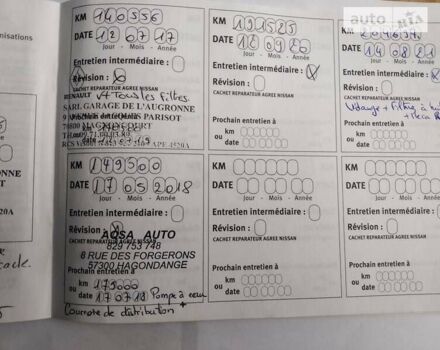 nisations
KM 140556
DATE 12 07 17
Jour - Mois - Année
Entretien intermédiaire :
Révision :
CACHET REPARATEUR AGREE NISSAN
RENAULT V+Tous les Filtres.
SARL GARAGE DE L'AIGRONNE
PARISOT
70800 MAGNONCOURT
KM 149500
DATE 17 05 2018
Jour - Mois - Année
Entretien intermédiaire :
Révision
CACHET REPARATEUR AGREE NISSAN
AQSA AUTO
829 753 748
8 RUE DES FORGERONS
57300 HAGONDANGE
Prochain entretien à
km 175000
ou date 17 07 18 Pompe à eau
+
Courroie de distribution
KM 191525
DATE 12 09 20
Jour - Mois - Année
Entretien intermédiaire :
Révision :
CACHET REPARATEUR AGREE NISSAN
Prochain entretien à
km
ou
date
KM
DATE
Jour - Mois - Année
Entretien intermédiaire :
Révision :
CACHET REPARATEUR AGREE NISSAN
Prochain entretien à
km
ou
date
KM
DATE 14 08 21
Jour - Mois - Année
Entretien intermédiaire
Révision :
CACHET REPARATEUR AGREE NISSAN
Vidange + Filtre à
Prochain entretien à
km
ou
date
KM
DATE
Jour - Mois - Année
Entretien intermédiaire
Révision :
CACHET REPARATEUR AGREE NISSAN
Prochain entretien à
km
ou
date
auto RIA